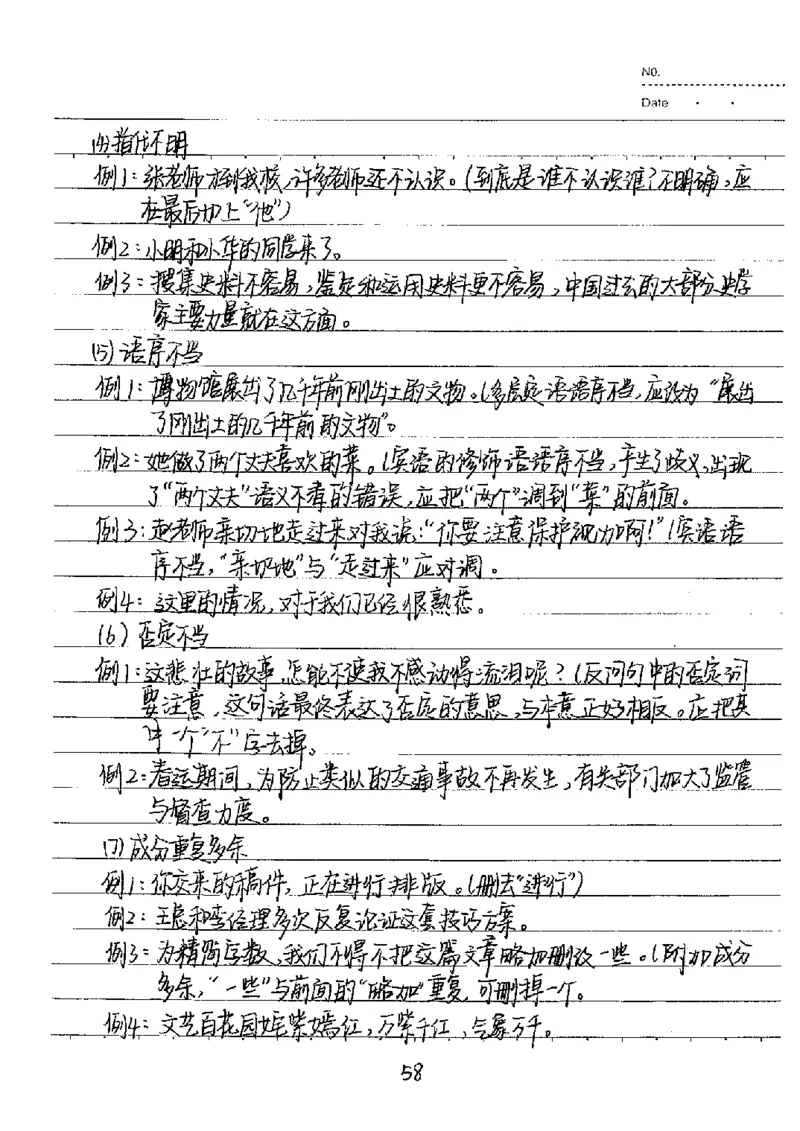 No.
Date · ·
(4)指代不明
例1:张老师才到我校,许多老师还不认识。(到底是谁不认识谁?不明确,应
在最后加上“他”)
例2:小明和小华的同学来了。
例3:搜集史料不容易,鉴定和运用史料更不容易,中国过去的大部分史学
家主要力量就在这方面。
(5)语序不当
例1:博物馆展出了几千年前刚出土的文物。(多层定语语序不当,应改为“展出
了刚出土的几千年前的文物”。
例2:她做了两个丈夫喜欢的菜。(宾语的修饰语语序不当,产生了歧义,出现
了“两个丈夫”语义不毒的错误,应把“两个”调到“菜”的前面。
例3:赵老师亲切地走过来对我说:“你要注意保护视力啊!”(宾语语
序不当,“亲切地”与“走过来”应对调。
例4:这里的情况,对于我们已经很熟悉。
(6)否定不当
例1:这悲壮的故事,怎能不使我不感动得流泪呢?(反问句中的否定词
要注意,这句话最终表达了否定的意思,与本意正好相反。应把其
中一个“不”字去掉。
例2:春运期间,为防止类似的交通事故不再发生,有关部门加大了监管
与督查力度。
(7)成分重复多余
例1:你交来的稿件,正在进行排版。(删去“进行”)
例2:王总和李经理多次反复论证这套技巧方案。
例3:为精简字数,我们不得不把这篇文章略加删改一些。(附加成分
多余,“一些”与前面的“略加”重复,可删掉一个。
例4:文艺百花园姹紫嫣红,万紫千红,气象万千。
58